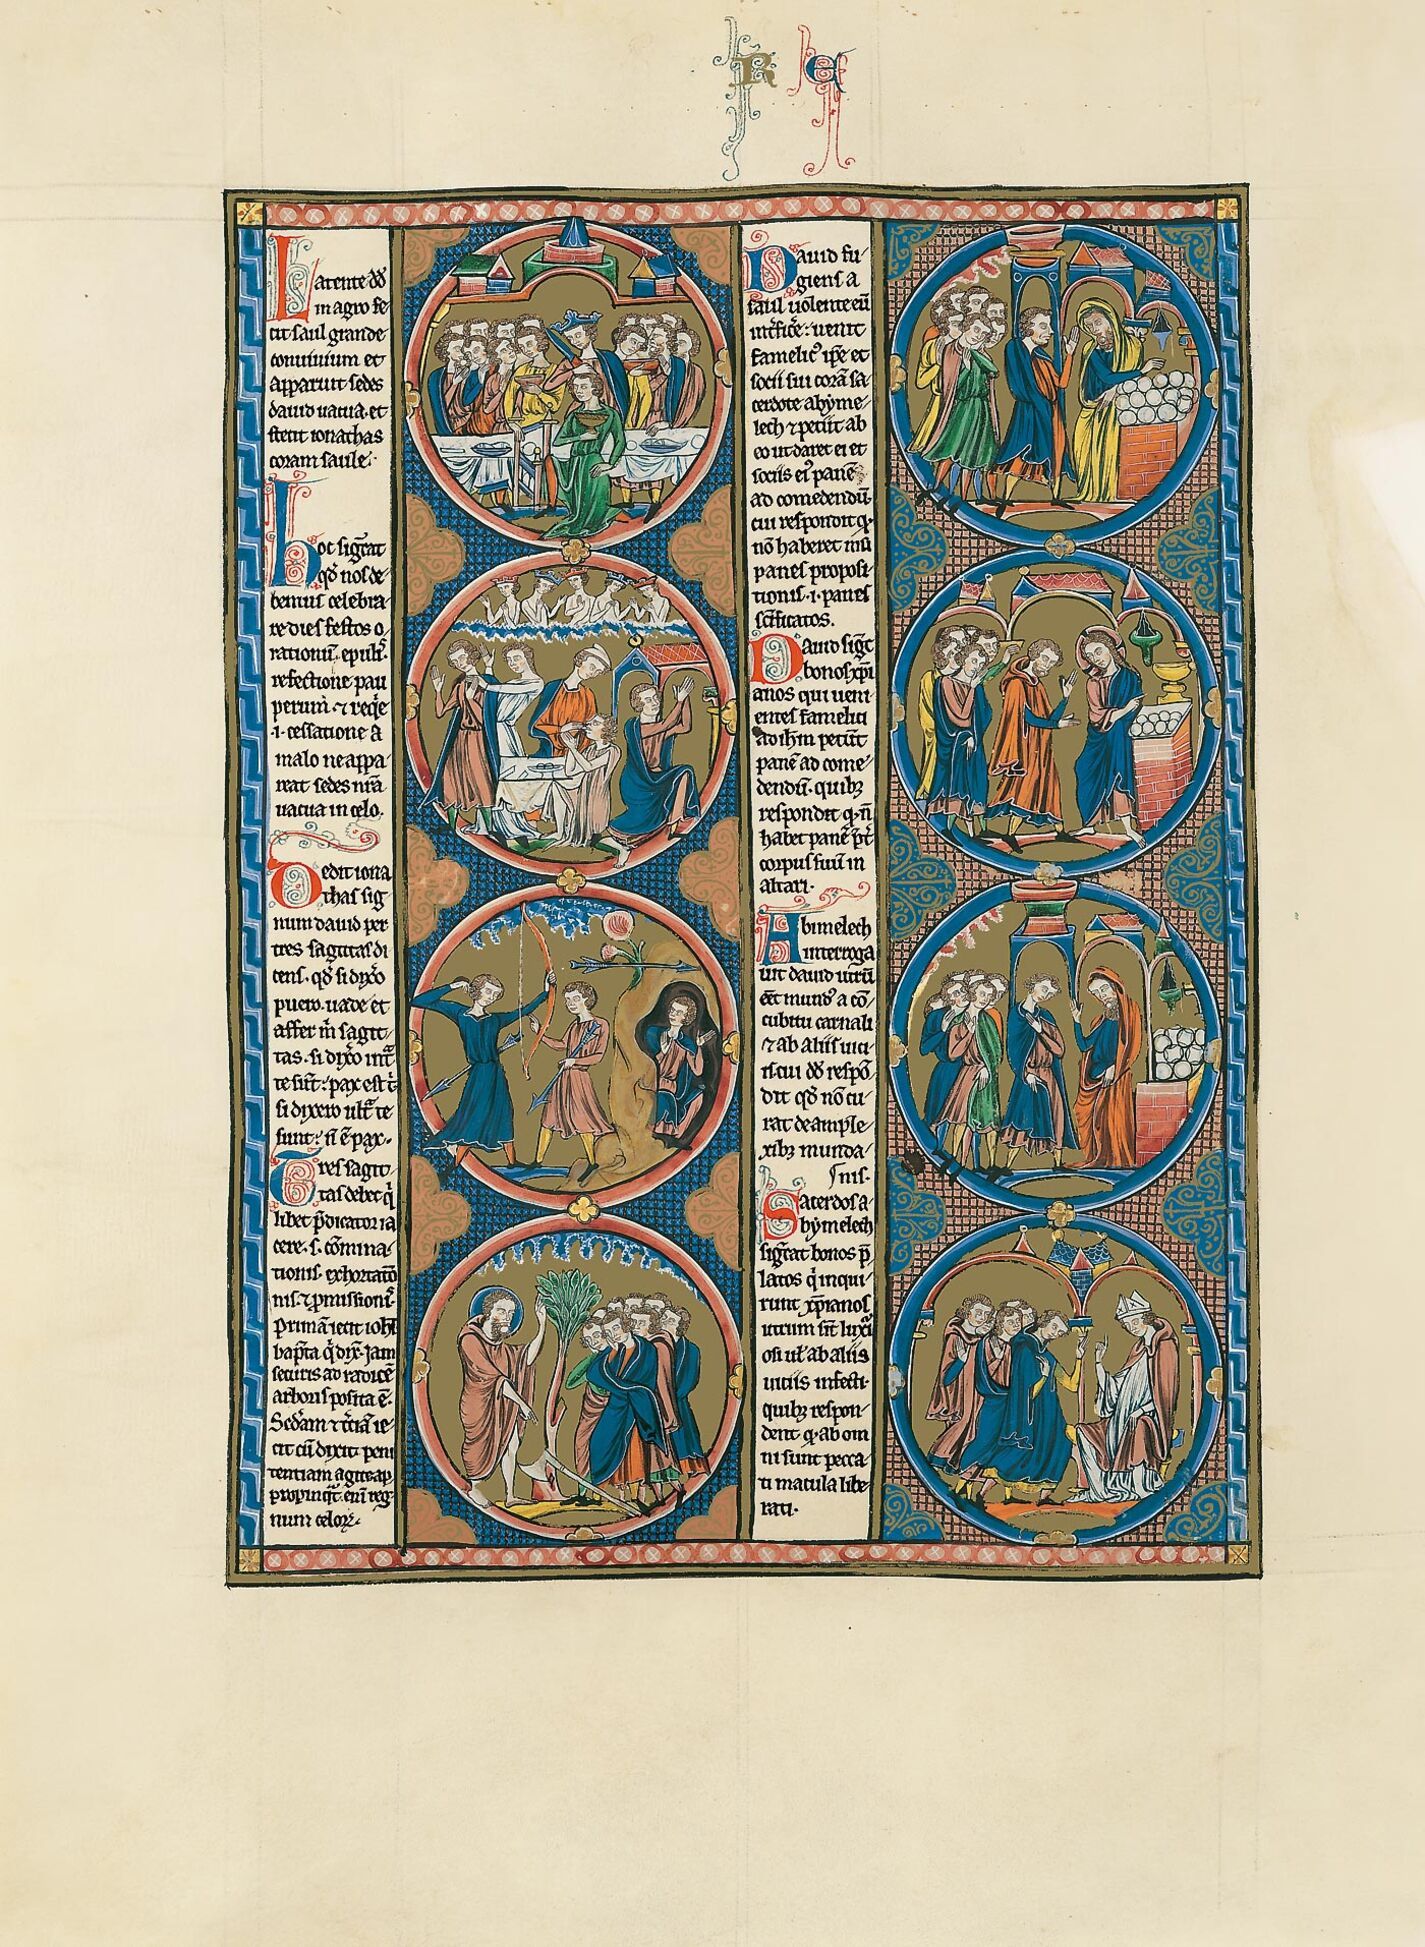 R E
Latente dd
in agro fe
cit saul grande
conuiuium et
apparuit sedes
dauid uacua. et
stetit ionathas
coram saule.
hoc sig͂cat
qd̄ nos de
bemus celebra
re dies festos o
rationū. epulis.
refectione pau
perum. ⁊ reqͥe
.i. cessatione a
malo ne appa
reat sedes nr̄a
uacua in celo.
Dedit iona
thas sig
num dauid per
tres sagittas di
cens. qd̄ si dixͦo
puero. uade et
affer m̄ sagit
tas. si dixͦo int͂
te sūt: pax est t̄
si dixero ult͂ te
sunt: n̄ ē pax.
Tres sagit
tas debet qͥ
libet p̄dicator ia
cere. s. cōmina
tionis. exhortatō
nis. ⁊ ꝓmissionis.
Primā iecit ioh̄
bapt̄a qͥ dix̄. Iam
securis ad radicē
arboris posita ē.
Sedām ⁊ t̄ciā ie
cit cū dixit peni
tentiam agite ap
propinq͂t. enī reg
num celoꝝ.
Dauid fu
giens a
saul uolente eū
int̄fic̄e: uenit
famelicꝰ ip̄e et
socii sui corā sa
cerdote abyme
lech ⁊ petiit ab
eo ut daret ei et
sociis eiꝰ panē
ad comedendū
cui respondit qͥ
nō haberet nisi
panes proposi
tionis .i. panes
sc̄ificatos.
Dauid sig͂t
bonos xp̄i
anos qui ueni
entes famelici
ad ih̄m petūt
panē ad come
dendū. quibꝫ
respondit qͥ n̄
habet panē p̄t̄
corpus suū in
altari.
Abimelech
interroga
uit dauid utrū
eēt mundꝰ a cō
cubitu carnali
⁊ ab aliis uici
is cui dd respō
dit qd̄ nō cu
rat de ample
xibꝫ munda
nis.
Sacerdos a
bymelech
sig͂cat bonos p̄
latos qͥ inqui
runt xp̄ianos
utrum sīt luxͥi
osi ul̄ ab aliis
uiciis infecti.
quibꝫ respon
dent qͥ ab om
ni sunt pecca
ti macula libe
rati.